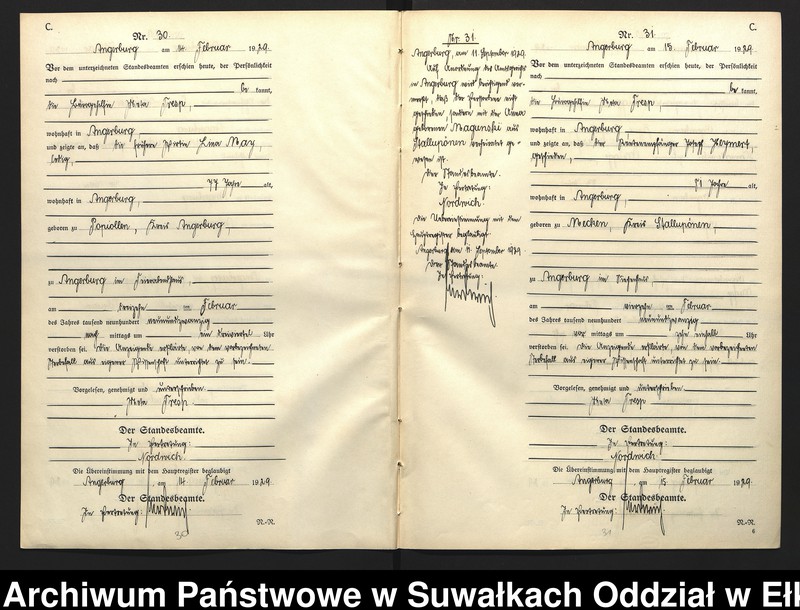 C.
Nr. 30.
Angerburg am 14. Februar 1929.
Vor dem unterzeichneten Standesbeamten erschien heute, der Persönlichkeit
nach be kannt,
die Meta Tresp,
wohnhaft in Angerburg
und zeigte an, daß die frühere Wirtin Lina May,
ledig,
77 Jahre alt,
wohnhaft in Angerburg,
geboren zu Popiollen, Kreis Angerburg,
zu Angerburg im
am dreizehn ten Februar
des Jahres tausend neunhundert neunundzwanzig
nach mittags um ein Uhr
verstorben sei. Die Anzeigende erklärte, von dem vorbezeichneten
Sterbefall aus eigener Wissenschaft unterrichtet zu sein.
Vorgelesen, genehmigt und unterschrieben
Meta Tresp
Der Standesbeamte.
In Vertretung:
Nordwich.
Die Übereinstimmung mit dem Hauptregister beglaubigt
Angerburg am 14. Februar 1929.
Der Standesbeamte.
In Vertretung:
N.-N.
30
Nr. 31.
Angerburg, am 11. September 1929.
Auf Anordnung des Amtsgerichts
in Angerburg wird berichtigend ver-
merkt, daß der Verstorbene nicht
geschieden sondern mit der Anna
geborenen Magunski aus
Stallupönen verheiratet ge-
wesen ist.
Der Standesbeamte.
In Vertretung:
Nordwich.
Die Übereinstimmung mit dem
Hauptregister beglaubigt
Angerburg am 11. September 1929.
Der Standesbeamte.
In Vertretung:
C.
Nr. 31.
Angerburg am 15. Februar 1929.
Vor dem unterzeichneten Standesbeamten erschien heute, der Persönlichkeit
nach be kannt,
die Meta Tresp,
wohnhaft in Angerburg
und zeigte an, daß der Rentenempfänger Joseph Heymert,
geschieden,
71 Jahre alt,
wohnhaft in Angerburg,
geboren zu Mecken, Kreis Stallupönen,
zu Angerburg im
am vierzehn ten Februar
des Jahres tausend neunhundert neunundzwanzig
vor mittags um zehn einhalb Uhr
verstorben sei. Die Anzeigende erklärte, von dem vorbezeichneten
Sterbefall aus eigener Wissenschaft unterrichtet zu sein.
Vorgelesen, genehmigt und unterschrieben
Meta Tresp
Der Standesbeamte.
In Vertretung:
Nordwich.
Die Übereinstimmung mit dem Hauptregister beglaubigt
Angerburg am 15. Februar 1929.
Der Standesbeamte.
In Vertretung:
N.-N.
6
31
Archiwum Państwowe w Suwałkach Oddział w Eł